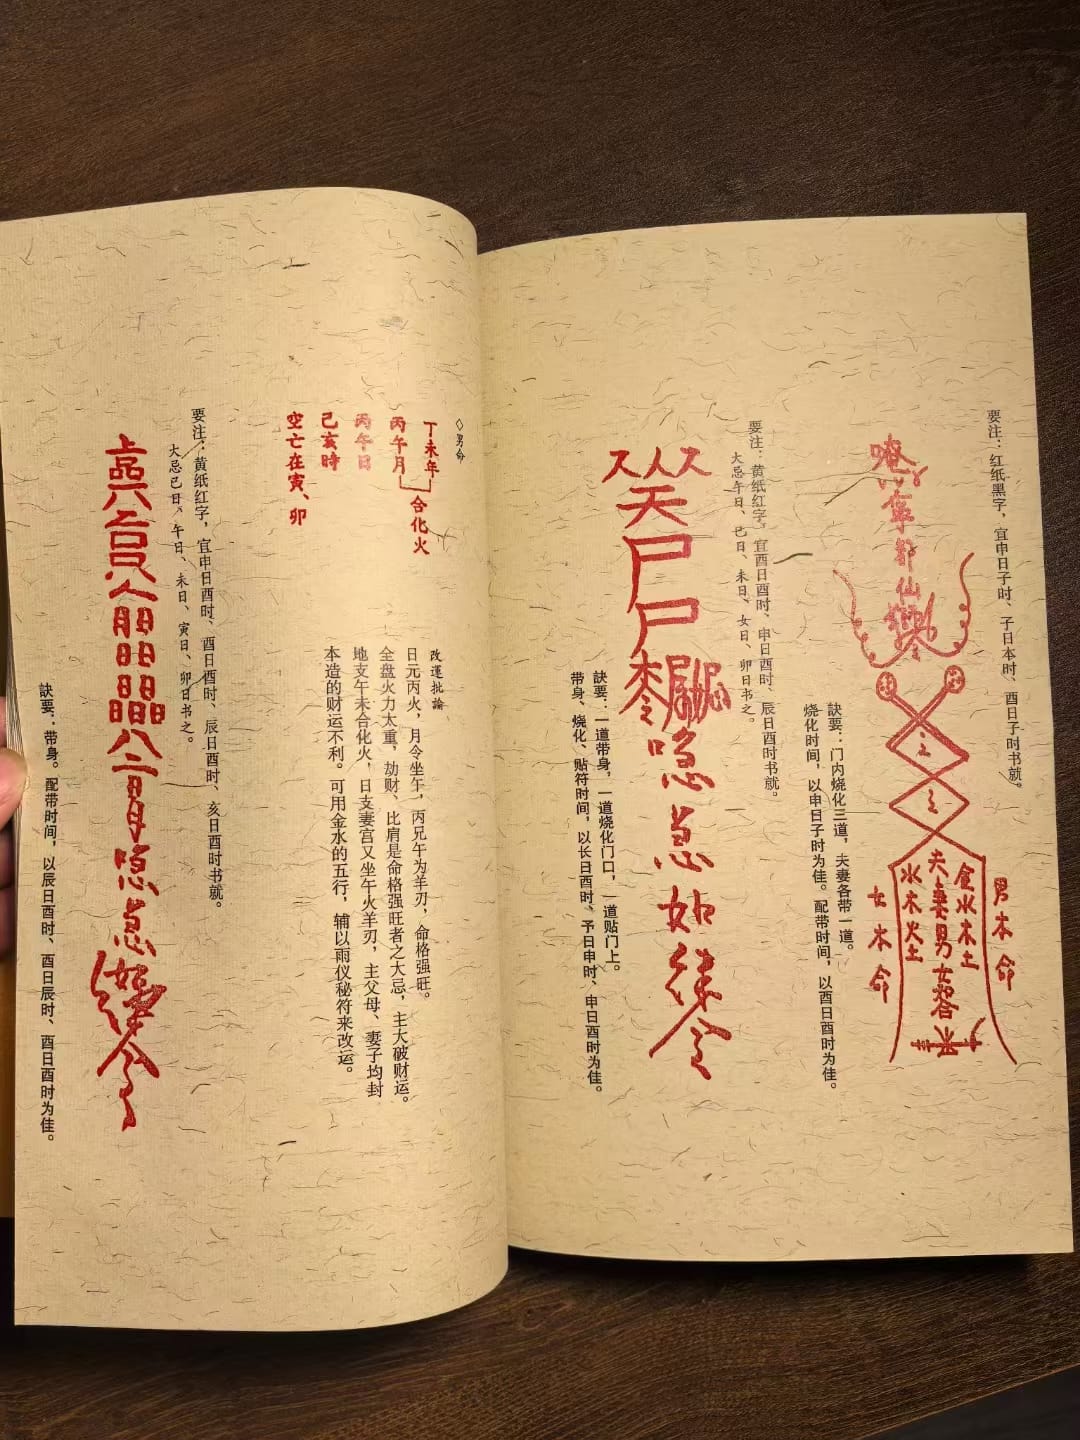 要注：红纸黑字，宜申日子时、子日本时、酉日子时书就。
男本命
金水木土
夫妻男女
水木火土
女本命
诀要：门内烧化三道，夫妻各带一道。
烧化时间，以申日子时为佳。配带时间，以酉日酉时为佳。
要注：黄纸红字，宜酉日酉时、申日酉时、辰日酉时书就。
大忌午日、巳日、未日、女日、卯日书之。
如律令
诀要：一道带身，一道烧化门口，一道贴门上。
带身、烧化、贴符时间，以长日酉时、予日申时、申日酉时为佳。
◇男命
丁未年
丙午月
合化火
丙午日
己亥時
空亡在寅、卯
改運批論
日元丙火，月令坐午，丙兄午为羊刃，命格强旺。
全盘火力太重，劫财、比肩是命格强旺者之大忌，主大破财运。
地支午未合化火，日支妻宫又坐午火羊刃，主父母、妻子均封
本造的财运不利。可用金水的五行，辅以雨仪秘符来改运。
要注：黄纸红字，宜申日酉时、酉日酉时、辰日酉时、亥日酉时书就。
大忌巳日、午日、未日、寅日、卯日书之。
诀要：带身。配带时间，以辰日酉时、酉日辰时、酉日酉时为佳。